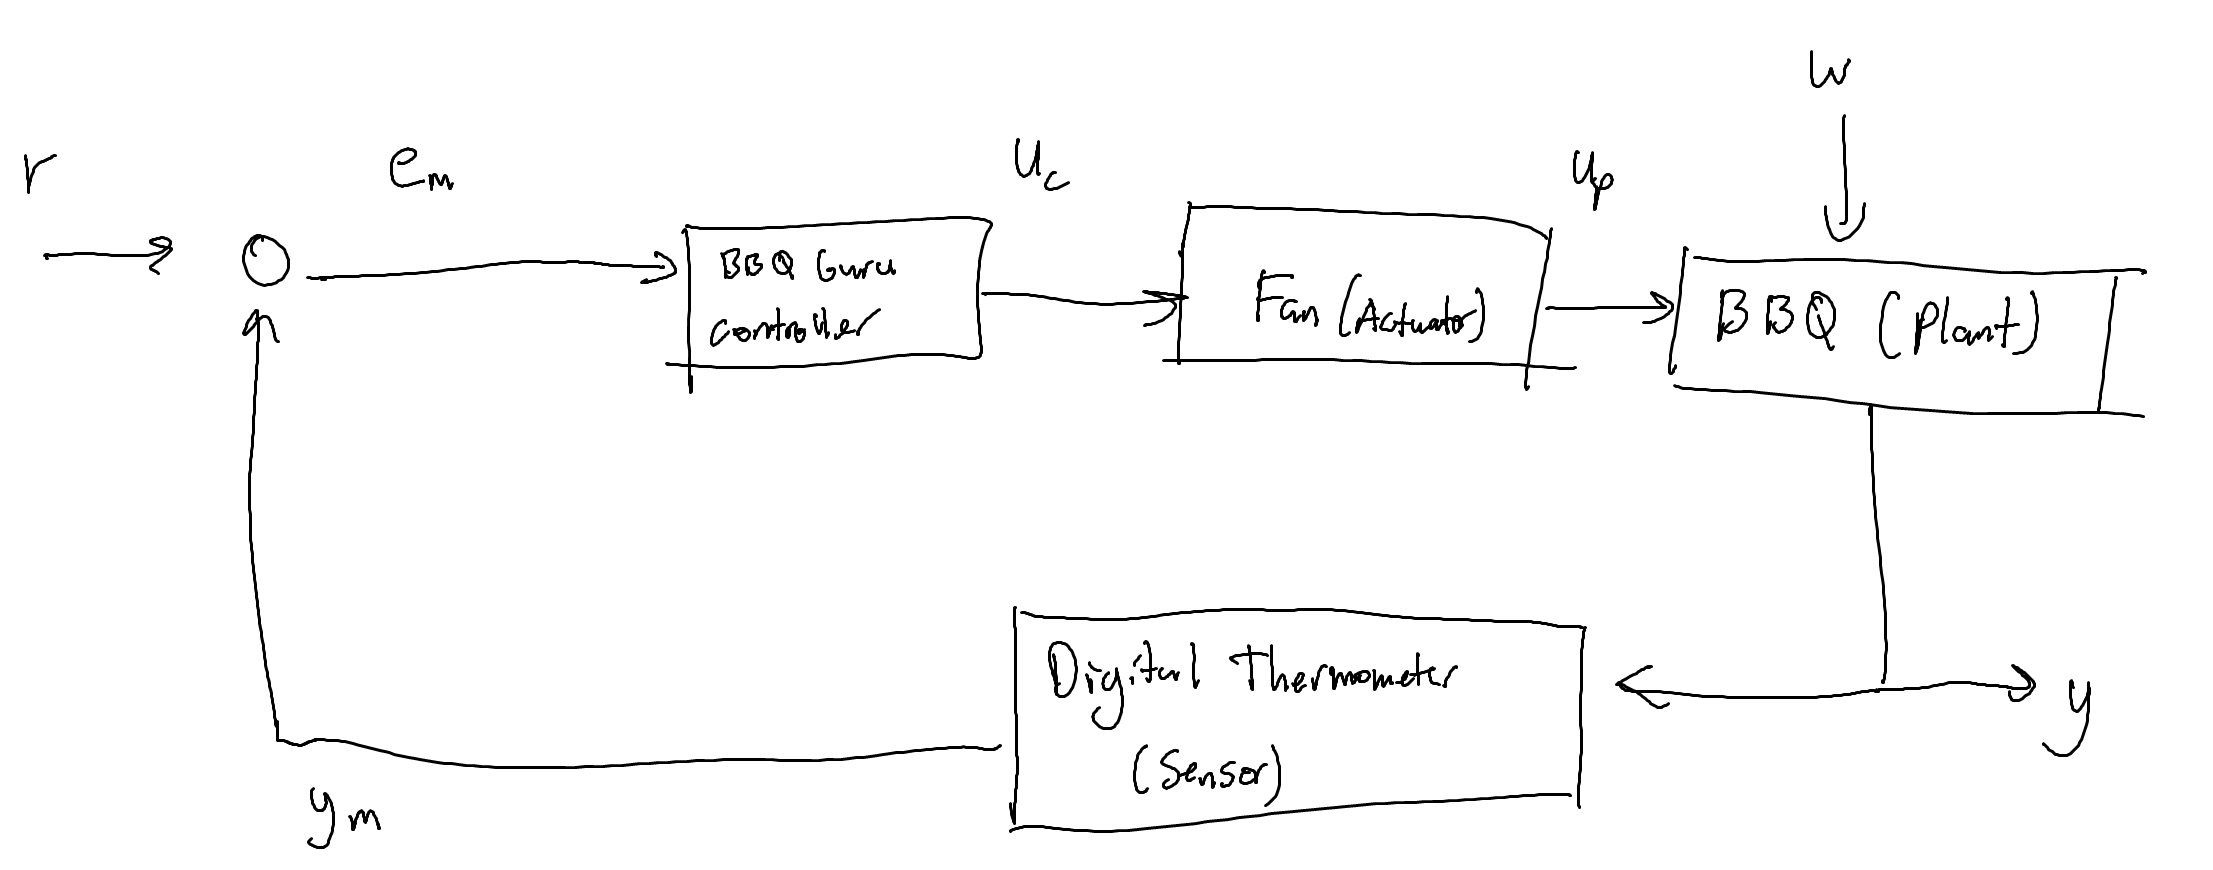 r
e_m
u_c
u_p
w
BBQ Guru
controller
Fan (Actuator)
BBQ (Plant)
Digital Thermometer
(Sensor)
y
y_m